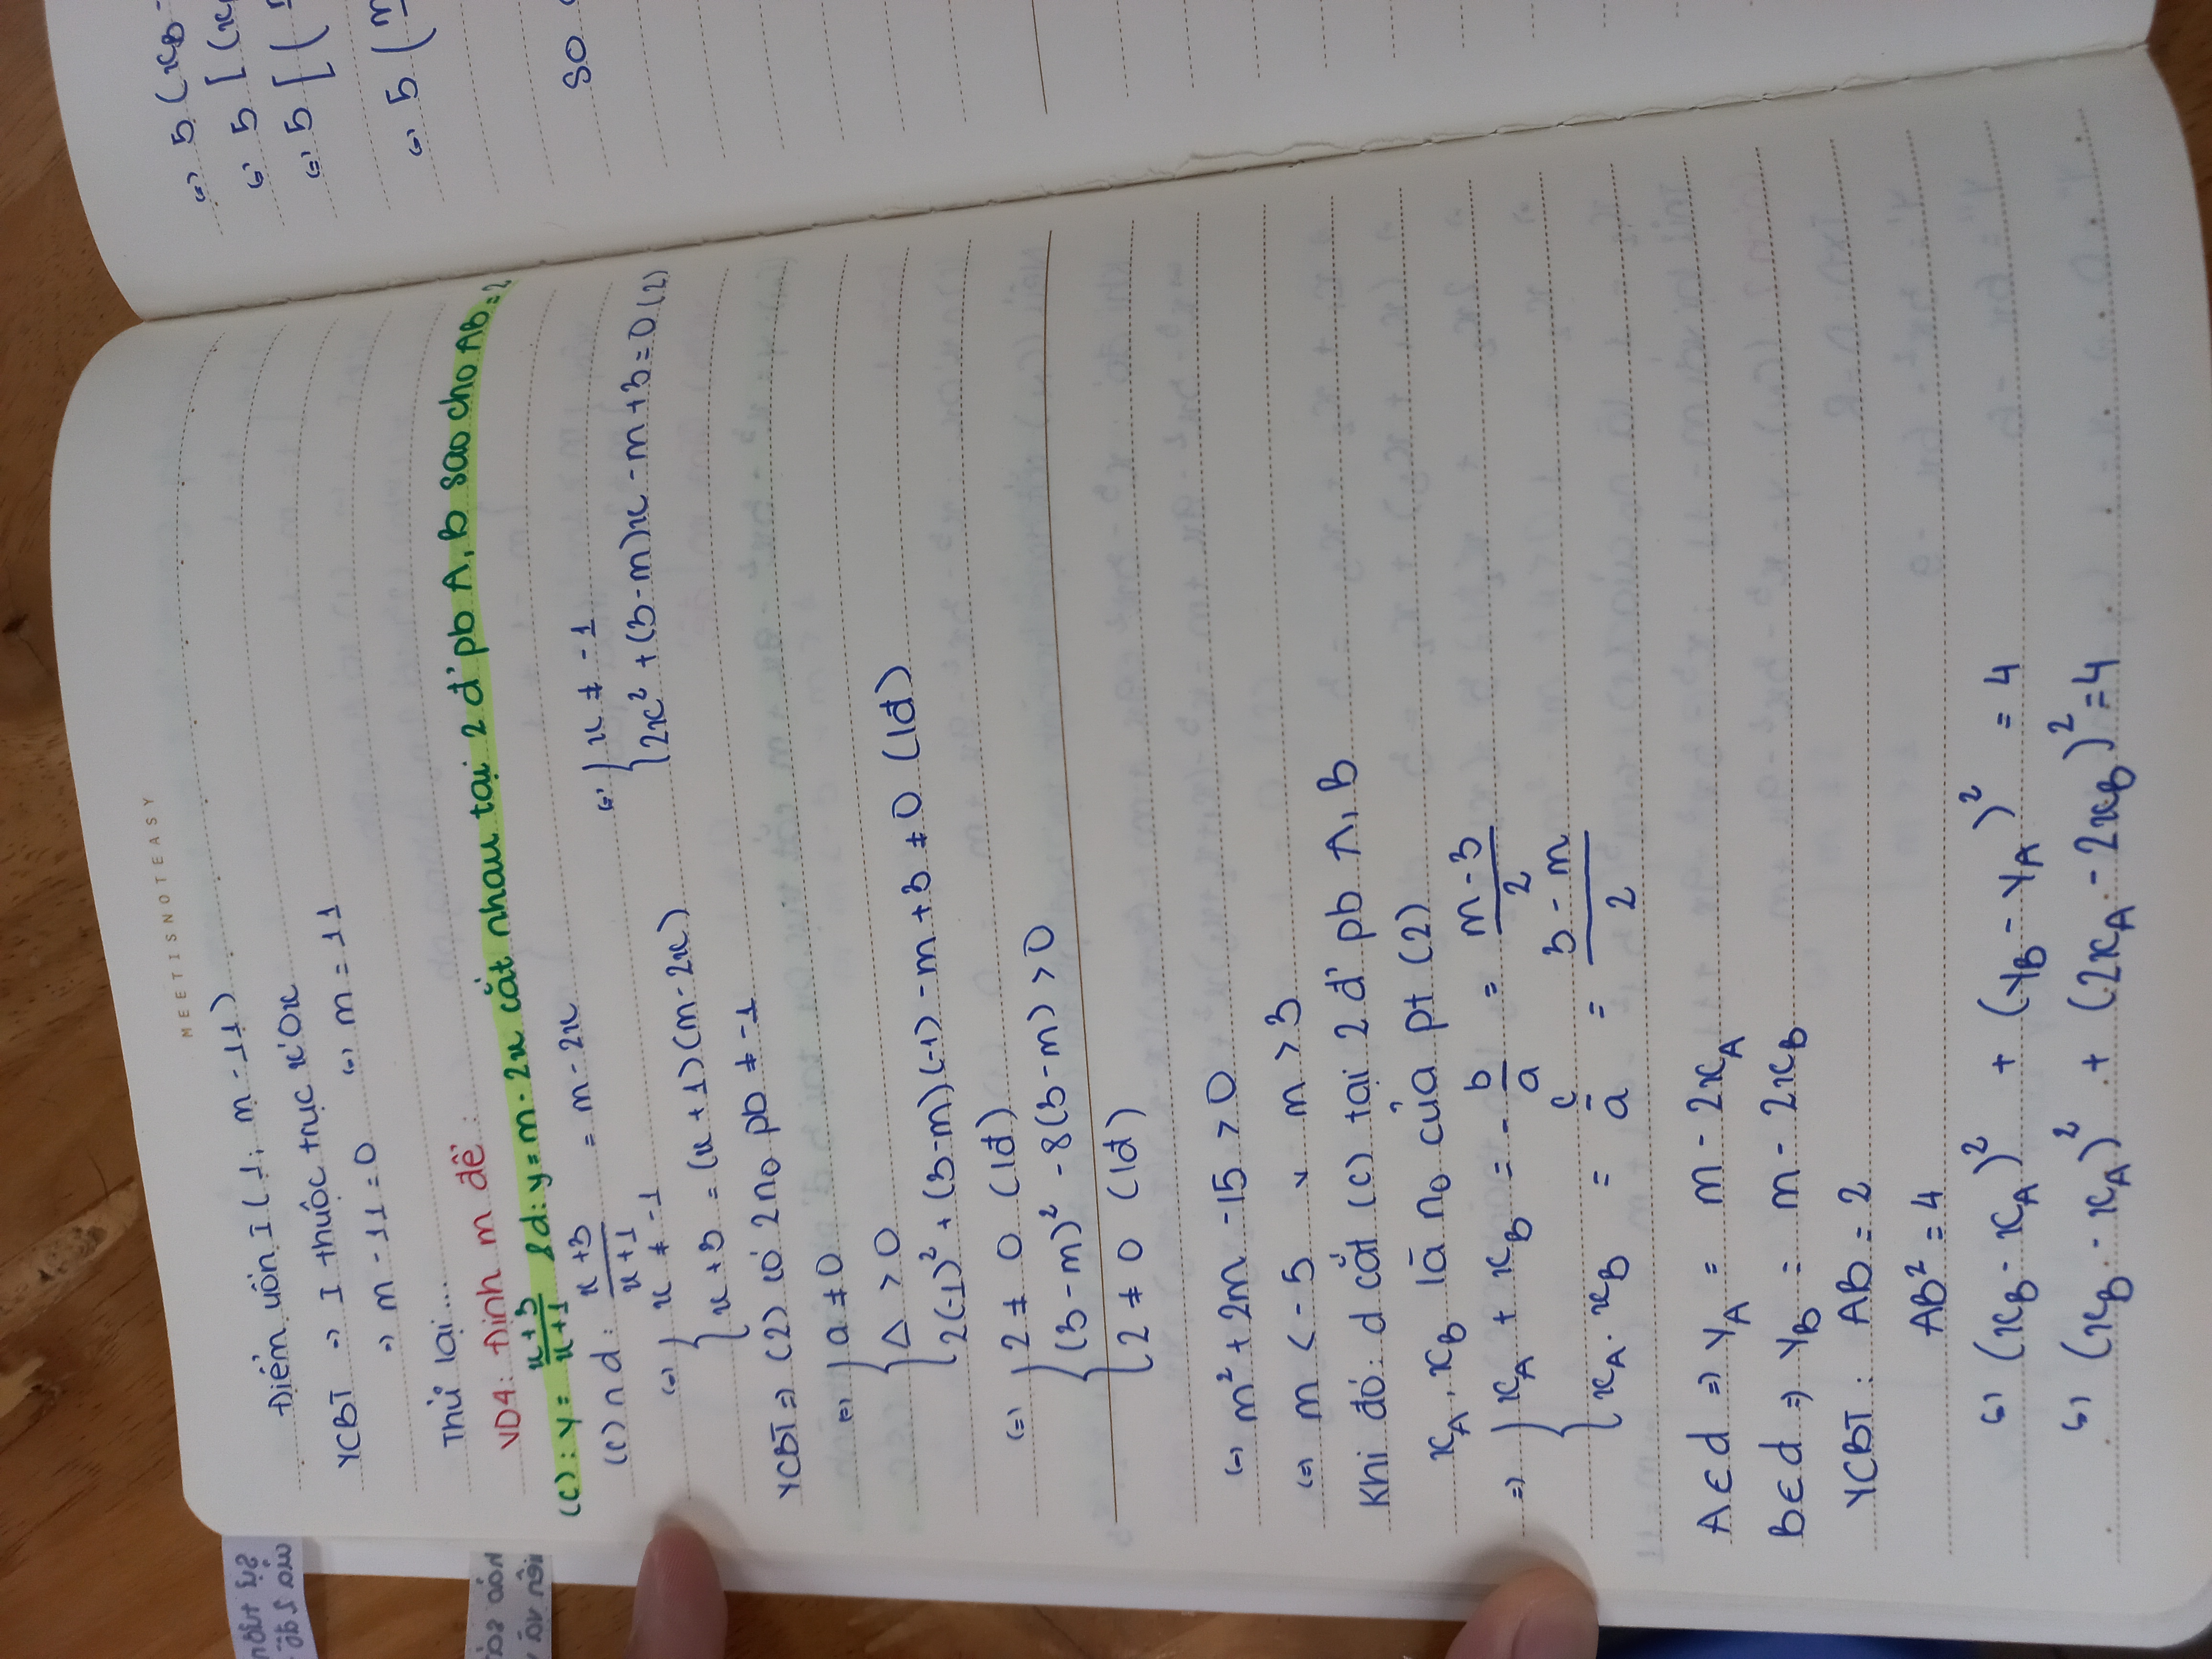 MEETISNOTEASY
Điểm uốn I ( 1; m - 11 )
YCBT => I thuộc trục x'Ox
=> m - 11 = 0 (=) m = 11
Thử lại...
VD4: Định m để :
(C) : y = (x+3)/(x+1) & d: y = m - 2x cắt nhau tại 2 đ' pb A, B sao cho AB = 2
(C) ∩ d : (x+3)/(x+1) = m - 2x
(=) { x ≠ -1
x + 3 = (x + 1)(m - 2x)
(=) { x ≠ -1
2x² + (3-m)x - m + 3 = 0 (2)
YCBT => (2) có 2 no pb ≠ -1
(=) { a ≠ 0
Δ > 0
2(-1)² + (3-m)(-1) - m + 3 ≠ 0 (lđ)
(=) { 2 ≠ 0 (lđ)
(3 - m)² - 8(3 - m) > 0
2 ≠ 0 (lđ)
(=) m² + 2m - 15 > 0
(=) m < - 5 v m > 3
Khi đó: d cắt (C) tại 2 đ' pb A, B
x_A, x_B là no của pt (2)
=> { x_A + x_B = - b/a = (m - 3)/2
x_A . x_B = c/a = (3 - m)/2
A ∈ d => y_A = m - 2x_A
B ∈ d => y_B = m - 2x_B
YCBT : AB = 2
AB² = 4
(=) (x_B - x_A)² + (y_B - y_A)² = 4
(=) (x_B - x_A)² + (2x_A - 2x_B)² = 4
(=) 5 (x_B -
(=) 5 [ (x
(=) 5 [ (
(=) 5 ( m
so